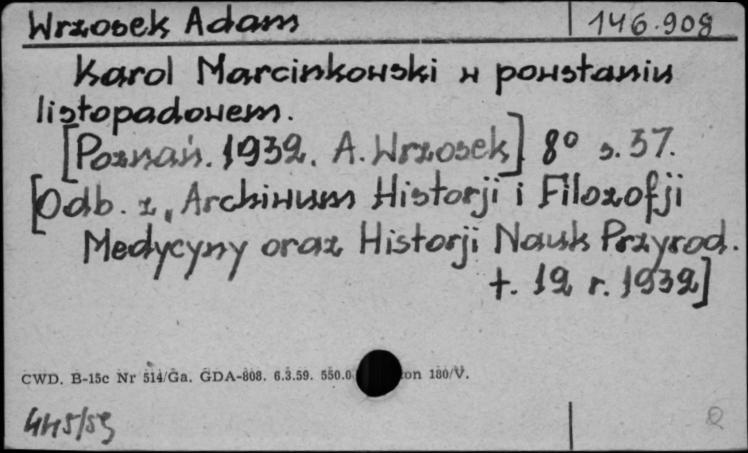 Wrzosek Adam 146.908
Karol Marcinkowski w powstaniu
listopadowem.
[Poznań. 1932. A. Wrzosek]. 8° s. 37.
[Odb. z „Archiwum Historji i Filozofji
Medycyny oraz Historji Nauk Przyrod.
t. 12 r. 1932]
CWD. B-15c Nr 514/Ga. GDA-808. 6.3.59. 550.0 on 180/V.